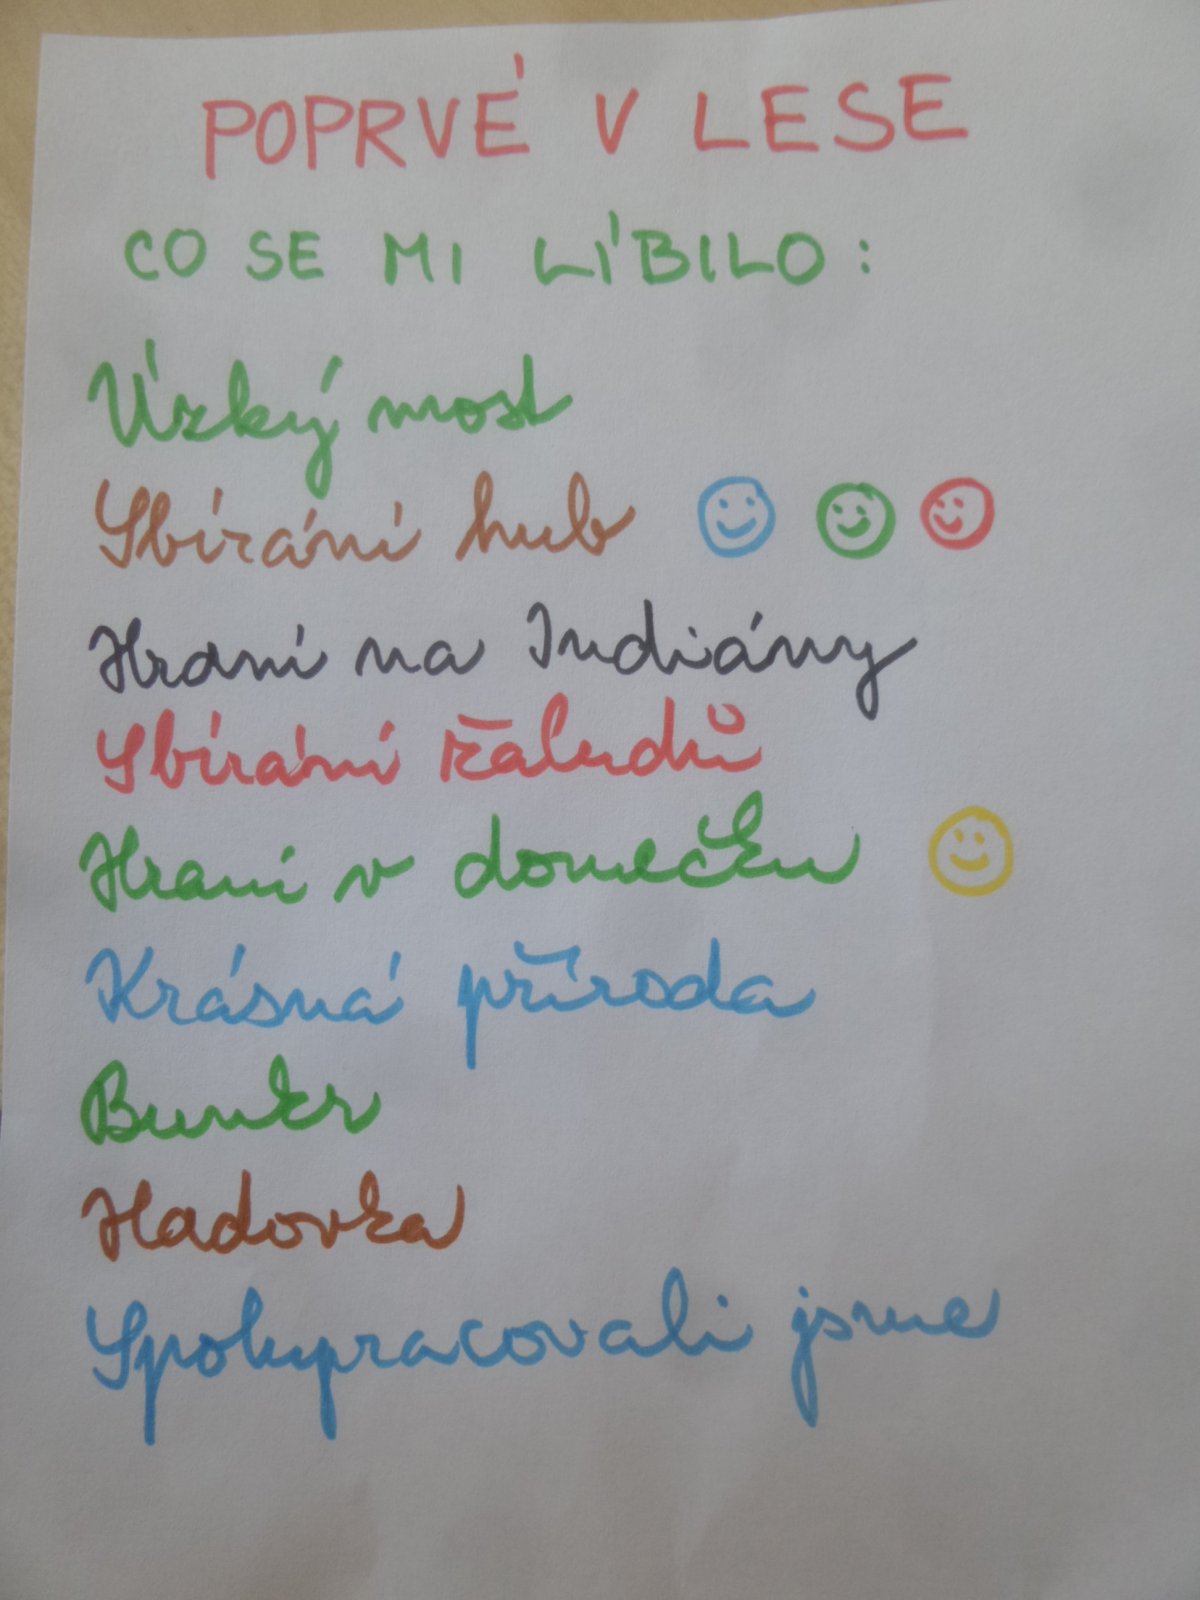 POPRVÉ V LESE
CO SE MI LÍBILO:
Úzký most
Sbírání hub
Hraní na Indiány
Sbírání žaludů
Hraní v domečku
Krásná příroda
Bunkr
Hadovka
Spolupracovali jsme